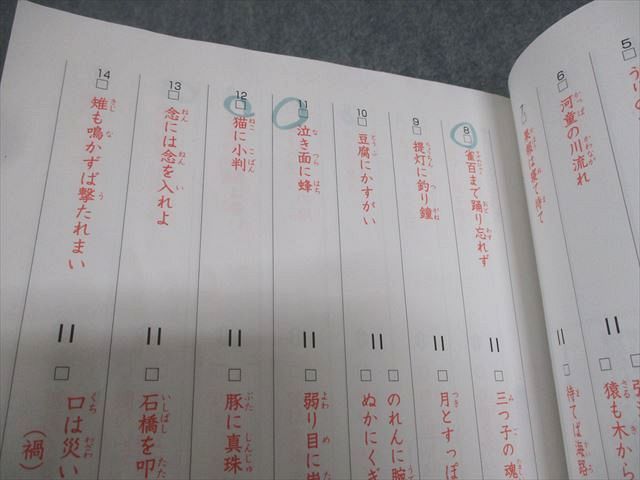 5
6 河童の川流れ
＝
猿も木から
7 果報は寝て待て
＝
待てば海路
8 雀百まで踊り忘れず
＝
三つ子の魂
9 提灯に釣り鐘
＝
月とすっぽ
10 豆腐にかすがい
＝
のれんに腕
ぬかにくぎ
11 泣き面に蜂
＝
弱り目に
12 猫に小判
＝
豚に真珠
13 念には念を入れよ
＝
石橋を叩
14 雉も鳴かずば撃たれまい
＝
口は災い
（禍）